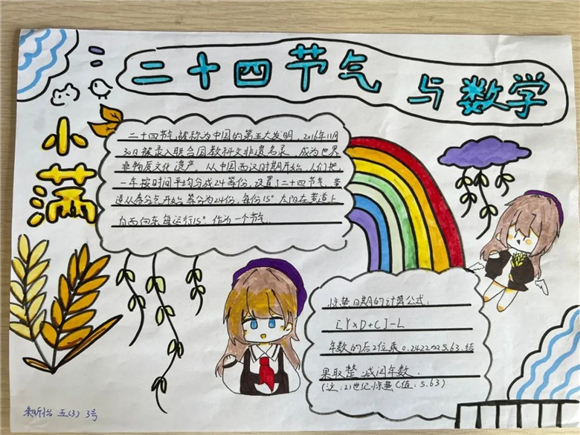 二十四节气 与数学
小满
二十四节气被称为中国的第五大发明,2016年11月
30日被录入联合国教科文非遗名录,成为世界
非物质文化遗产。从中国西汉时期开始,人们把
一年按时间平均分成24等份,设置了二十四节气,黄
道从春分点开始等分为24份,每份15°太阳在黄道上
自西向东每运行15°作为一个节气
惊蛰日期的计算公式:
[Y×D+C]-L
年数的后2位乘0.2422加5.63,结
果取整减闰年数
(注:21世纪惊蛰C值:5.63)
五(3) 3号